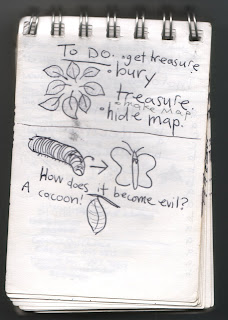 TO DO: • get treasure
• bury
treasure.
• make map
• hide map.
How does it become evil?
A cocoon!